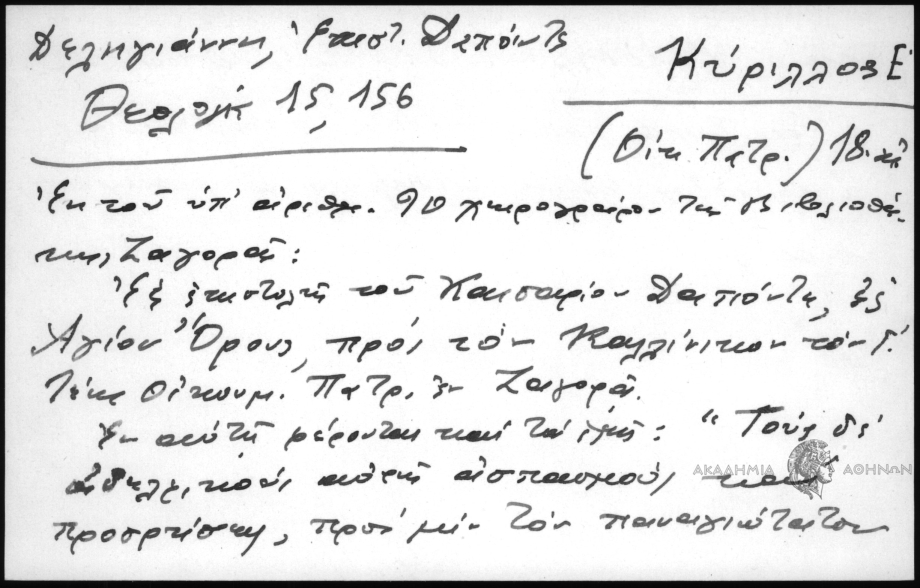 Δεληγιάννη, Ἐπιστ. Δαπόντε
Θεολογ. 15, 156
Κύριλλος Ε΄
(Οἰκ. Πατρ.) 18.
Ἐκ τοῦ ὑπ' ἀριθμ. 90 χειρογράφου τῆς Βιβλιοθή-
κης Ζαγορᾶς:
Ἐξ ἐπιστολῆς τοῦ Καισαρίου Δαπόντε, ἐξ
Ἁγίου Ὄρους, πρὸς τὸν Καλλίνικον τὸν Γ΄.
Οἰκουμ. Πατρ. ἐν Ζαγορᾷ.
Ἐν αὐτῇ φέρονται καὶ τὰ ἑξῆς: "Τοὺς δὲ
ἀδελφικοὺς αὐτῆς ἀσπασμοὺς καὶ
ΑΚΑΔΗΜΙΑ ΑΘΗΝΩΝ
προσρήσεις, πρὸς μὲν τὸν παναγιώτατον